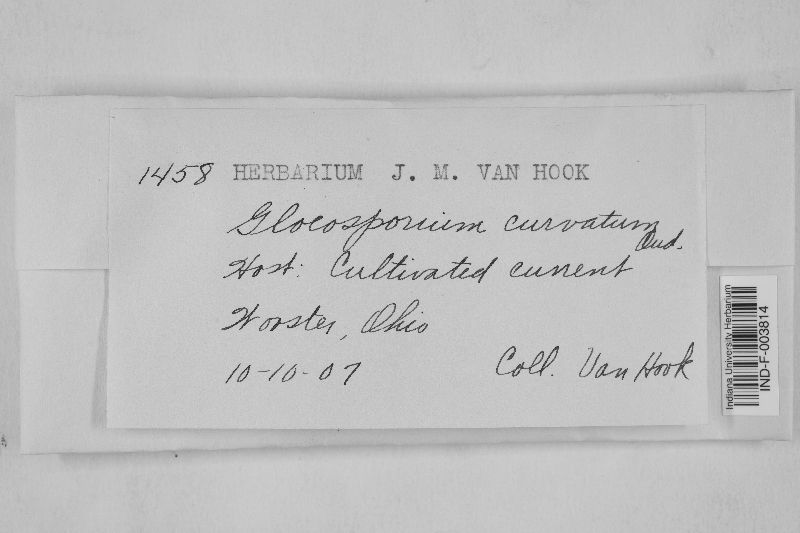 1458 HERBARIUM J. M. VAN HOOK
Gloeosporium curvatum Oud.
Host: Cultivated current
Wooster, Ohio
10-10-07 Coll. Van Hook
Indiana University Herbarium
IND-F-003814